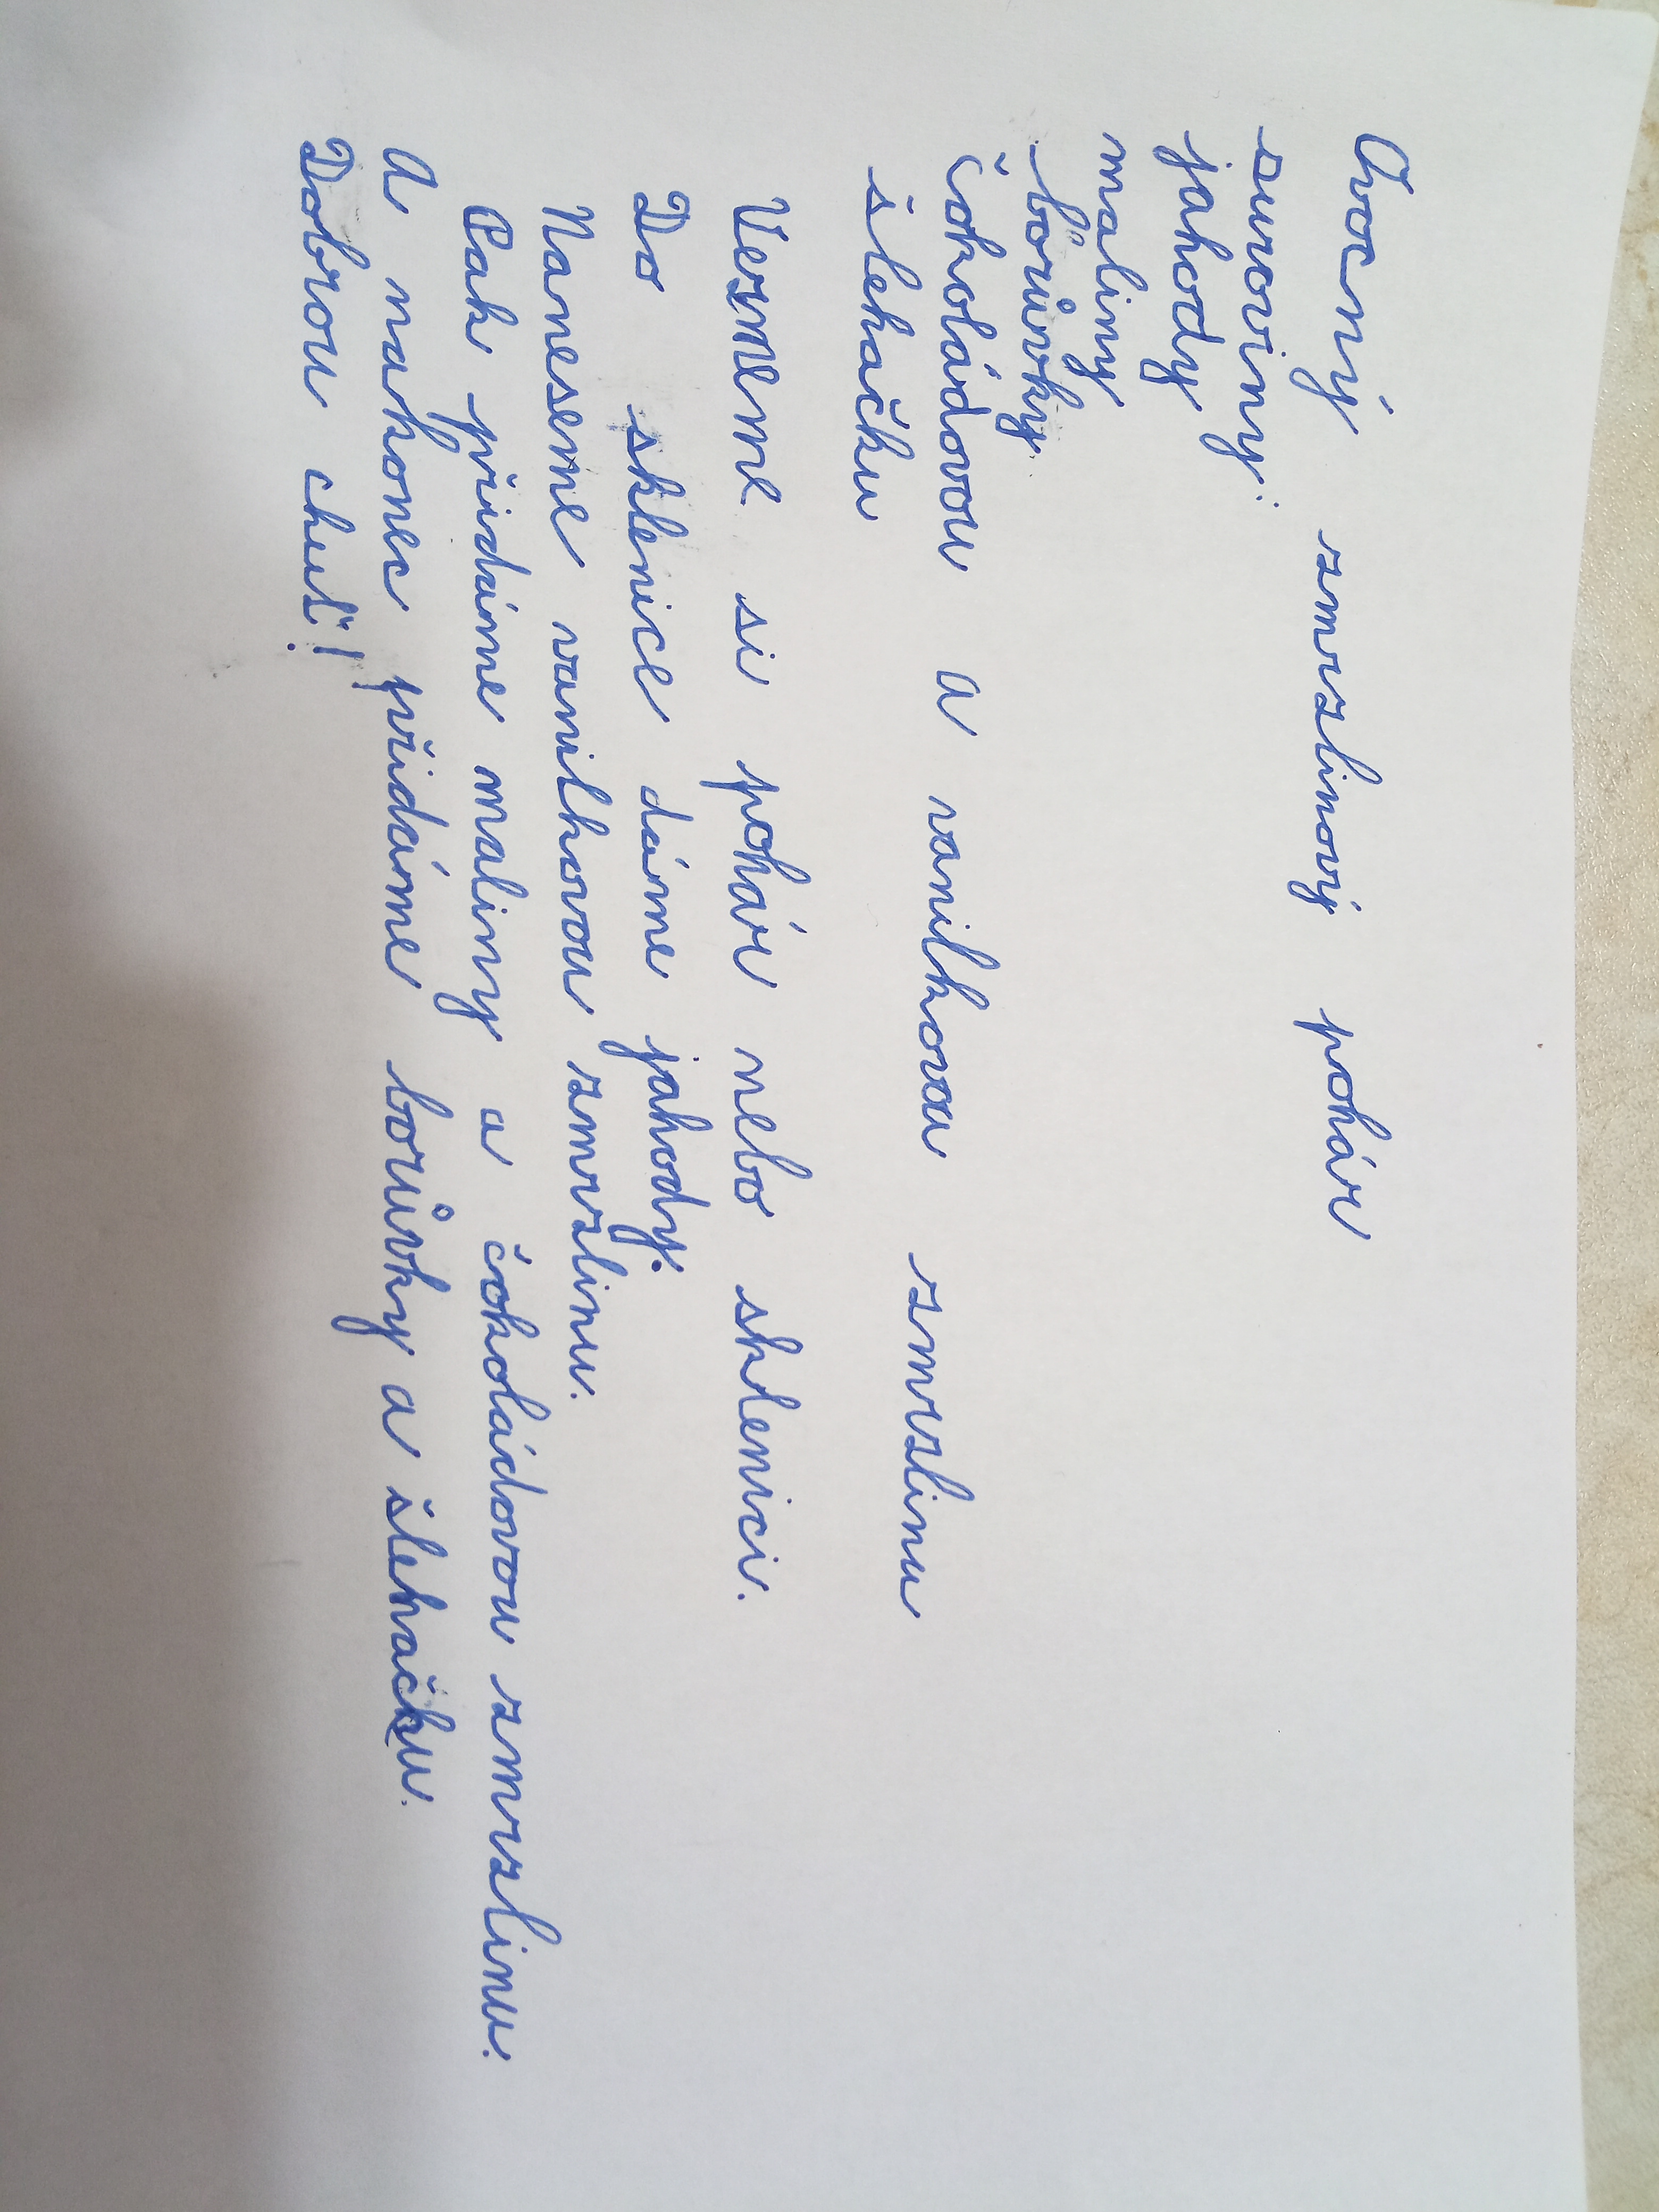 Ovocný zmrzlinový pohár
suroviny:
jahody
maliny
borůvky
čokoládovou a vanilkovou zmrzlinu
šlehačku
Vezmeme si pohár nebo sklenici.
Do sklenice dáme jahody.
Naneseme vanilkovou zmrzlinu.
Pak přidáme maliny a čokoládovou zmrzlinu.
A nakonec přidáme borůvky a šlehačku.
Dobrou chuť!